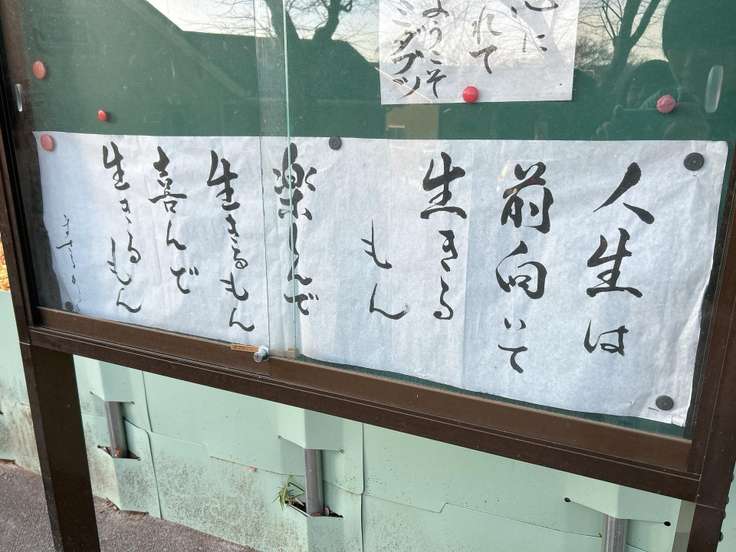 れて
ようこそ
ミダブツ
人生は
前向いて
生きる
もん
楽しんで
生きるもん
喜んで
生きるもん